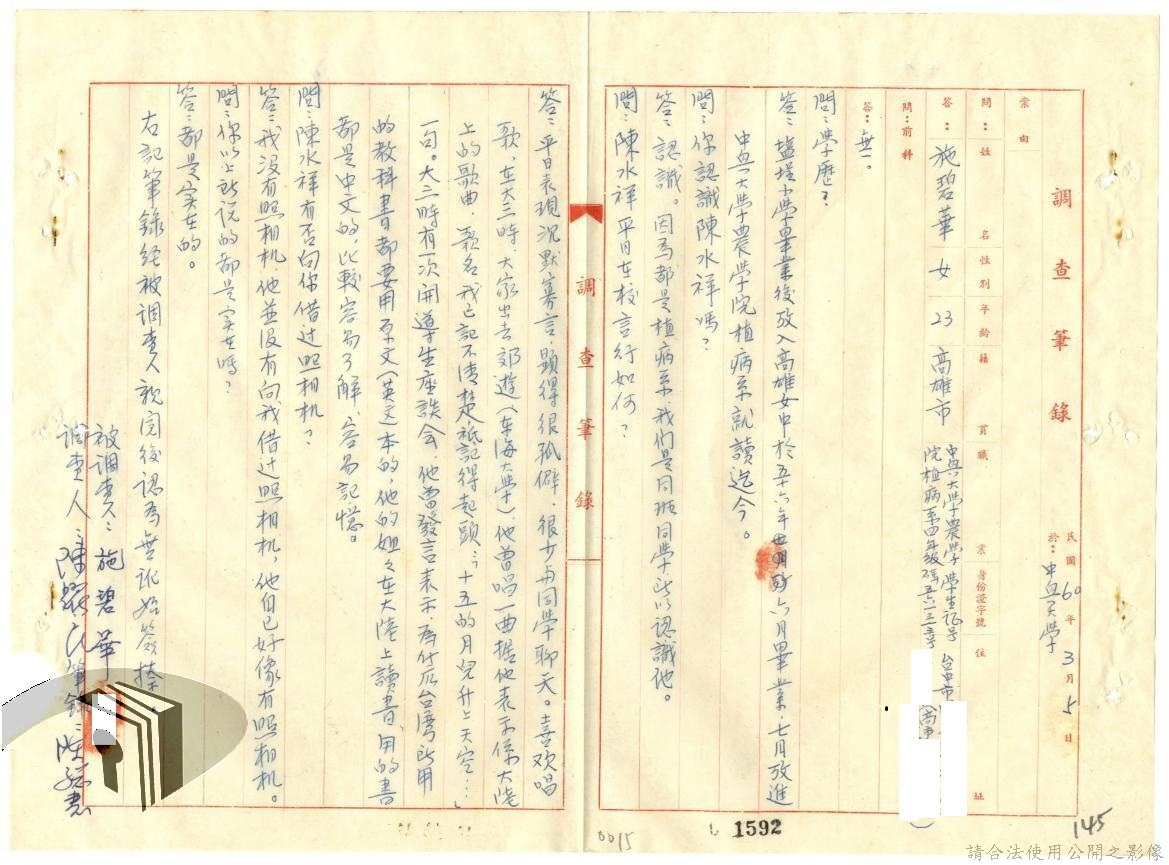 調查筆錄
民國60年3月5日
於：中興大學
案由
問：姓名 性別 年齡 籍貫 職業 身份證字號 住址
答：施碧華 女 23 高雄市 中興大學農學院植病系四年級 學生證号 台中市
問：前科
答：無。
問：學歷？
答：塩埕小學畢業後攷入高雄女中於五十六年六月畢業，七月攷進
中興大學農學院植病系就讀迄今。
問：你認識陳水祥嗎？
答：認識。因為都是植病系，我們是同班同學，所以認識他。
問：陳水祥平日在校言行如何？
調查筆錄
答：平日表現沉默寡言，顯得很孤僻，很少与同學聊天。喜欢唱
歌，在大三時，大家出去郊遊（東海大學）他曾唱一曲据他表示係大陸
上的歌曲，歌名我已記不清楚，祇記得起頭：「十五的月兒升上天空…」
一句。大二時有一次開導生座談会，他曾發言表示，為什厶台湾所用
的教科書都要用原文（英文）本的，他的姐々在大陸上讀書，用的書
都是中文的，比較容易了解，容易記憶。
問：陳水祥有否向你借过照相机？
答：我沒有照相机，他並沒有向我借过照相机，他自己好像有照相机。
問：你以上所說的都是实在嗎？
答：都是实在的。
右記筆錄经被調查人親閱後認為無訛始簽捺。
被調查人：施碧華
調查人：
筆錄：
0015
1592
145
請合法使用公開之影像